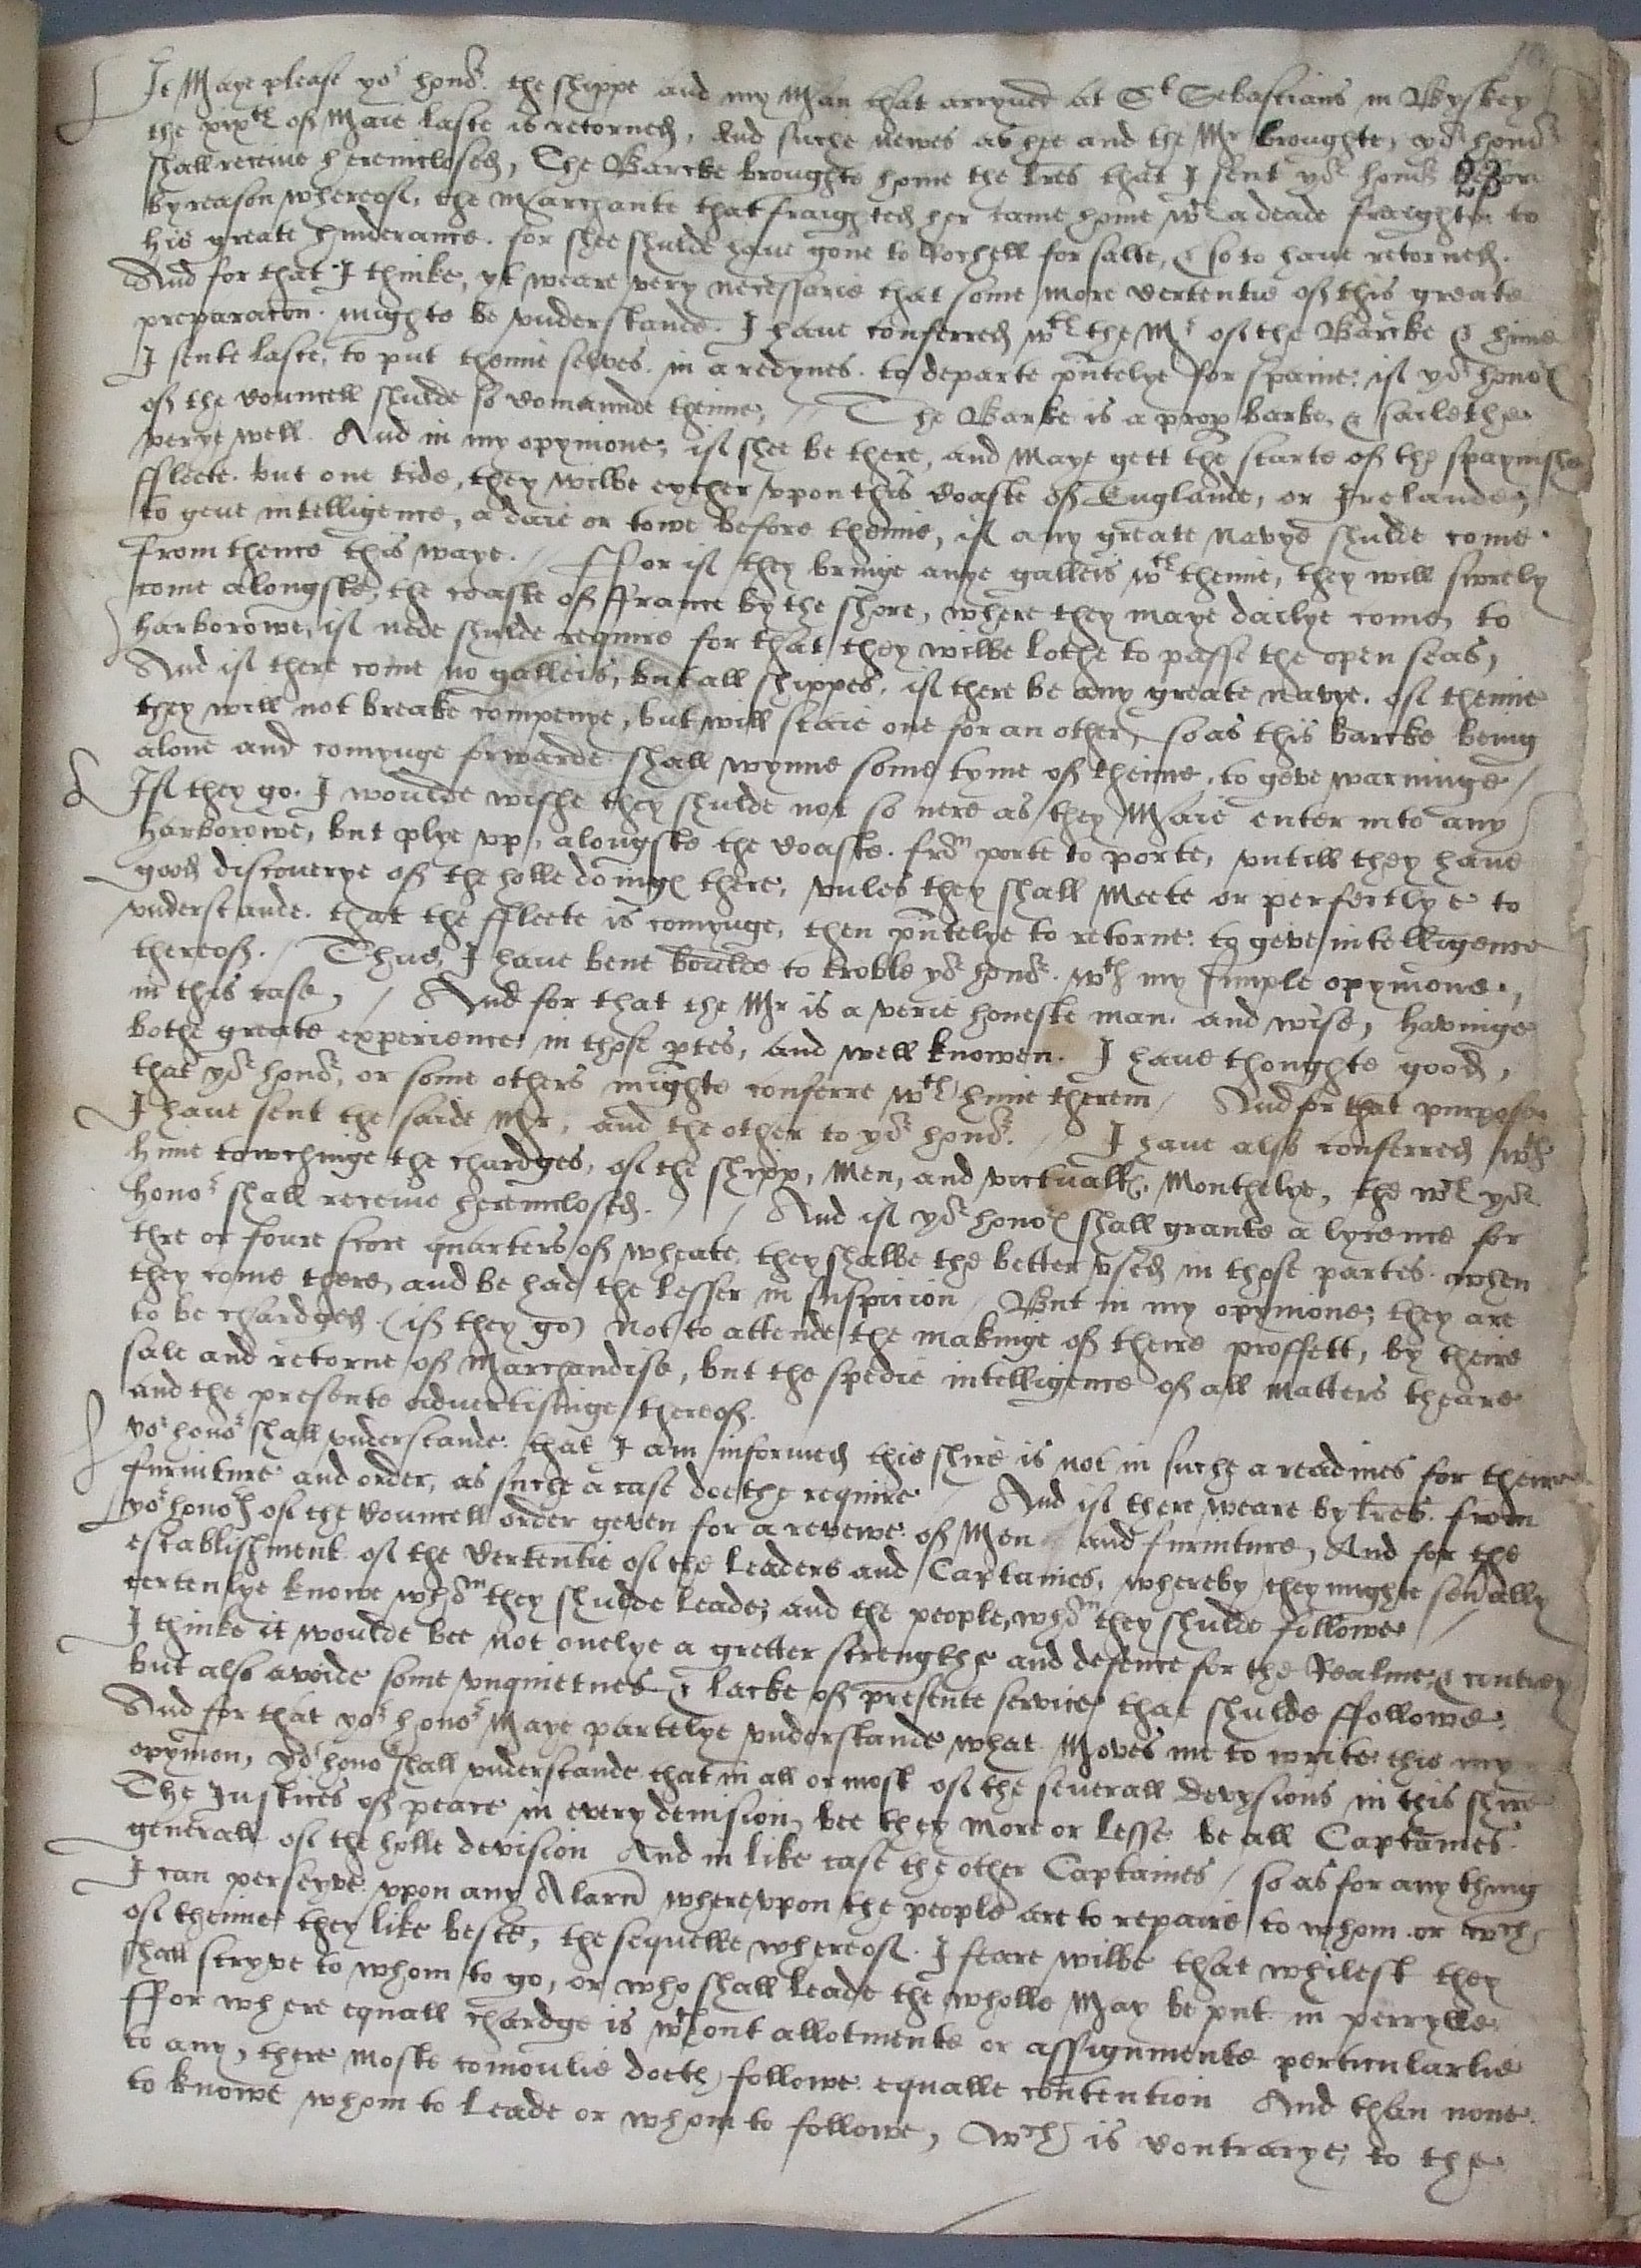 It Maye please yor honor. the shippe and my Man that arryved at St Sebastians in Byskey
the xixth of Maie laste is retorned, And suche newes as hee and the Mr broughte, yor honor
shall receive hereinclosed, The Barcke broughte home the lres that I sent yor honor before
23
by reason whereof, the Marchante that fraighted her came home wth a deade fraighte to
his greate hinderance. for shee shulde have gone to Rochell for salte, & so to have retorned.
And for that I thinke, yt weare very necessarie that some more certentie of this greate
preparacon. mighte be understande. I have conferred wth the Mr of the Barcke & hime
I sente laste, to put theme selves. in a redynes. to departe pntelye for spaine: if yor honors
of the Councell shulde so Comaunde theime, // The Barke is a prop barke, & sailethe
verye well. And in my opynione; if shee be there, and Maye gett the starte of the spaynishe
ffleete. but one tide, they wilbe eyther upon this Coaste of Englande, or Irelande;
to geve intelligence, a daie or towe before theime, if any greate Navye shulde come
from thence this waye. // ffor if they bringe anye galleis wth theime, they will suerly
come alongste, the coaste of ffrance by the shore, where they maye dailye come, to
harborowe, if nede shulde require for that they wilbe lothe to passe the open seas,
And if there come no galleis, but all shippes. if there be any greate navye. of theime
they will not breake compenye, but will staie one for an other, so as this barcke being
alone and comynge forwarde shall wynne some tyme of theime, to geve warninge /
If they go. I woulde wishe they shulde not so nere as they Maie enter into any
harborowe, but plye up, alongste the Coaste. from porte to porte, untill they have
good discoverye of the holle doings there, unles they shall Meete or perfectlye to
understande. that the ffleete is comynge, then pntelye to retorne: to geve intelligence
thereof. / Thus, I have bene boulde to troble yor honor. wth my simple opynione,
in this case, / And for that the Mr is a verie honeste man. and wise, havinge
bothe greate experience in those ptes, and well knowen. I have thoughte good,
that yor honor, or some others mighte conferre wth hime therein / And for that purpose
I have sent the saide Mr, and the other to yor honor. // I have also conferred wth
hime towchinge the chardges, of the shipp, Men, and victualls. Monthelye, the wch yor
honor shall receive hereinclosed. // And if yor honors shall grante a lycence for
thre or foure score quarters of wheate, they shalbe the better used in those partes. when
they come there, and be had the lesser in suspicion / But in my opynione; they are
to be chardged (if they go) not to attende the makinge of theire proffett, by theire
sale and retorne of Marchandise, but the spedie intelligence of all matters theare
and the presente advertisinge thereof.
Yor honor shall understande: that I am informed this shire is not in suche a readines for theire
furniture and order, as suche a case doethe require / And if there weare by lres. from
yor honors of the Councell order geven for a revewe of Men and furniture, And for the
establishment of the Certentie of the Leaders and Captaines, whereby they mighte sevally
certenlye knowe whom they shulde leade; and the people, whom they shulde followe /
I thinke it woulde bee not onelye a gretter strengthe and defence for the Realme, & contrey
but also avoide some unquietnes & lacke of presente service that shulde ffollowe,
And for that yor honor Maye partelye understande what Moves me to write this my
opynion, yor honor shall understande that in all or most of the severall devysions in this shire
The Justices of peace in every devision, bee they more or lesse be all Captaines
generall of the holle devision And in like case the other Captaines / so as for any thing
I can perseyve upon any Alarm whereupon the people are to repaire to whom or wch
of theime they like beste, the sequelle whereof. I feare wilbe that whilest they
shall stryve to whom to go, or who shall leade the wholle May be put in perrylle
ffor where equall chardge is wthout allotmente or assignmente perticularlie
to any, there moste comonlie doeth followe equalle contention And than none
to knowe whom to leade or whom to followe, Wch is Contrarye, to the